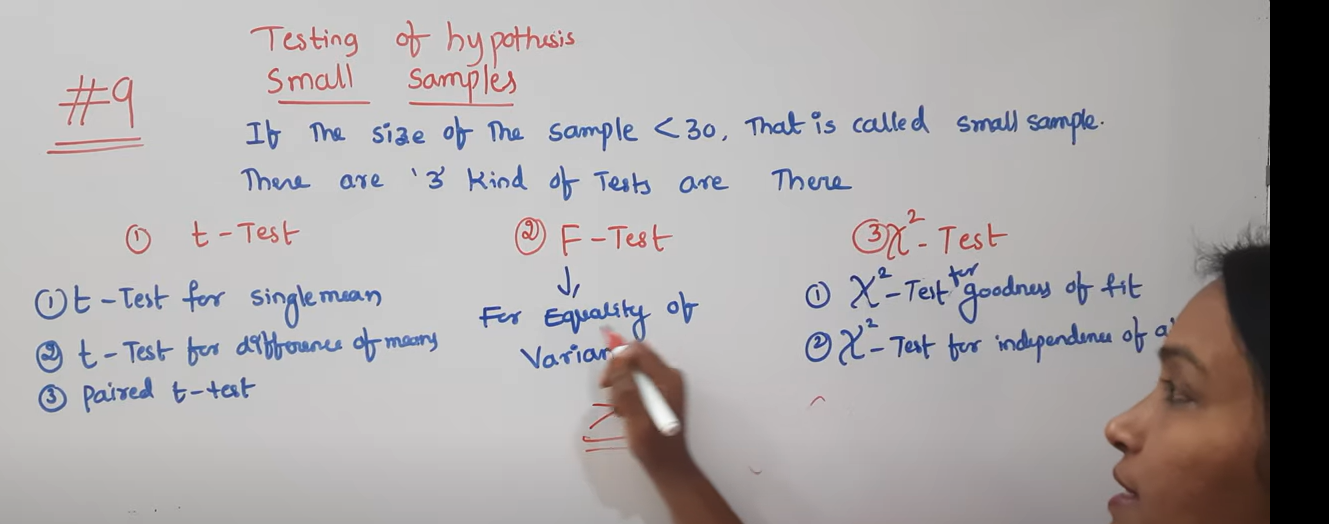 Testing of hypothesis
#9
Small Samples
If The size of The sample < 30, That is called small sample.
There are '3' Kind of Tests are There
① t - Test
① t - Test for single mean
② t - Test for difference of means
③ paired t - test
② F - Test
↓
For Equality of
③ χ² - Test
① χ² - Test for goodness of fit
② χ² - Test for independence of